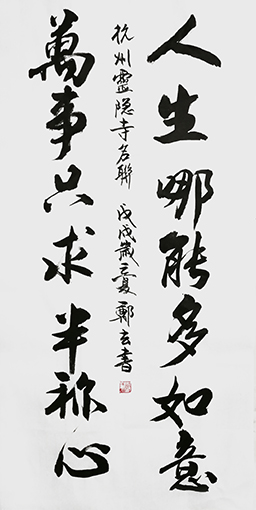 人生哪能多如意
萬事只求半称心
杭州靈隐寺名聯 戊戌歲夏 鄭玄書